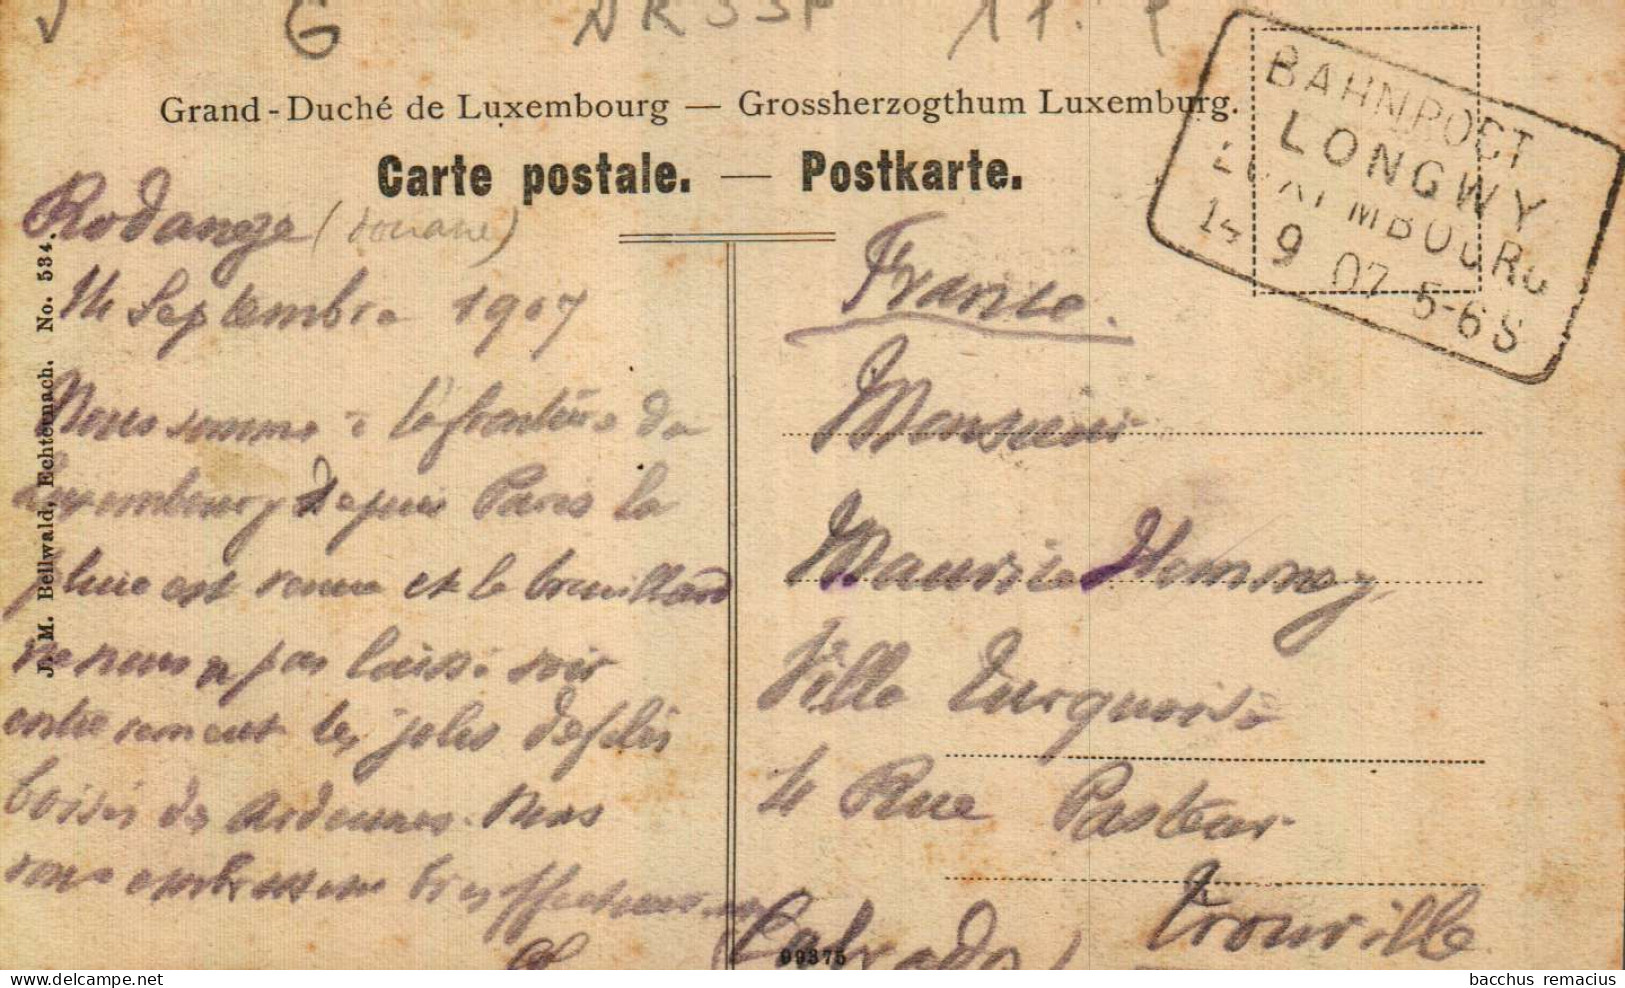 G
Grand-Duché de Luxembourg — Grossherzogthum Luxemburg.
Carte postale. — Postkarte.
BAHNPOST
LONGWY
LUXEMBOURG
14 9 07 5-6 S
J. M. Bellwald, Echternach. No. 534.
Rodange (douane)
14 Septembre 1907
Nous sommes à la frontière du
Luxembourg depuis Paris la
pluie est venue et le brouillard
ne nous a pas laissé voir
entièrement les jolis défilés
boisés des Ardennes. Nous
vous embrassons bien affectueusement
France.
Monsieur
Maurice Hemmey
Villa Turquoise
4 Rue Pasteur
Trouville
(Calvados)
99375
bacchus remacius